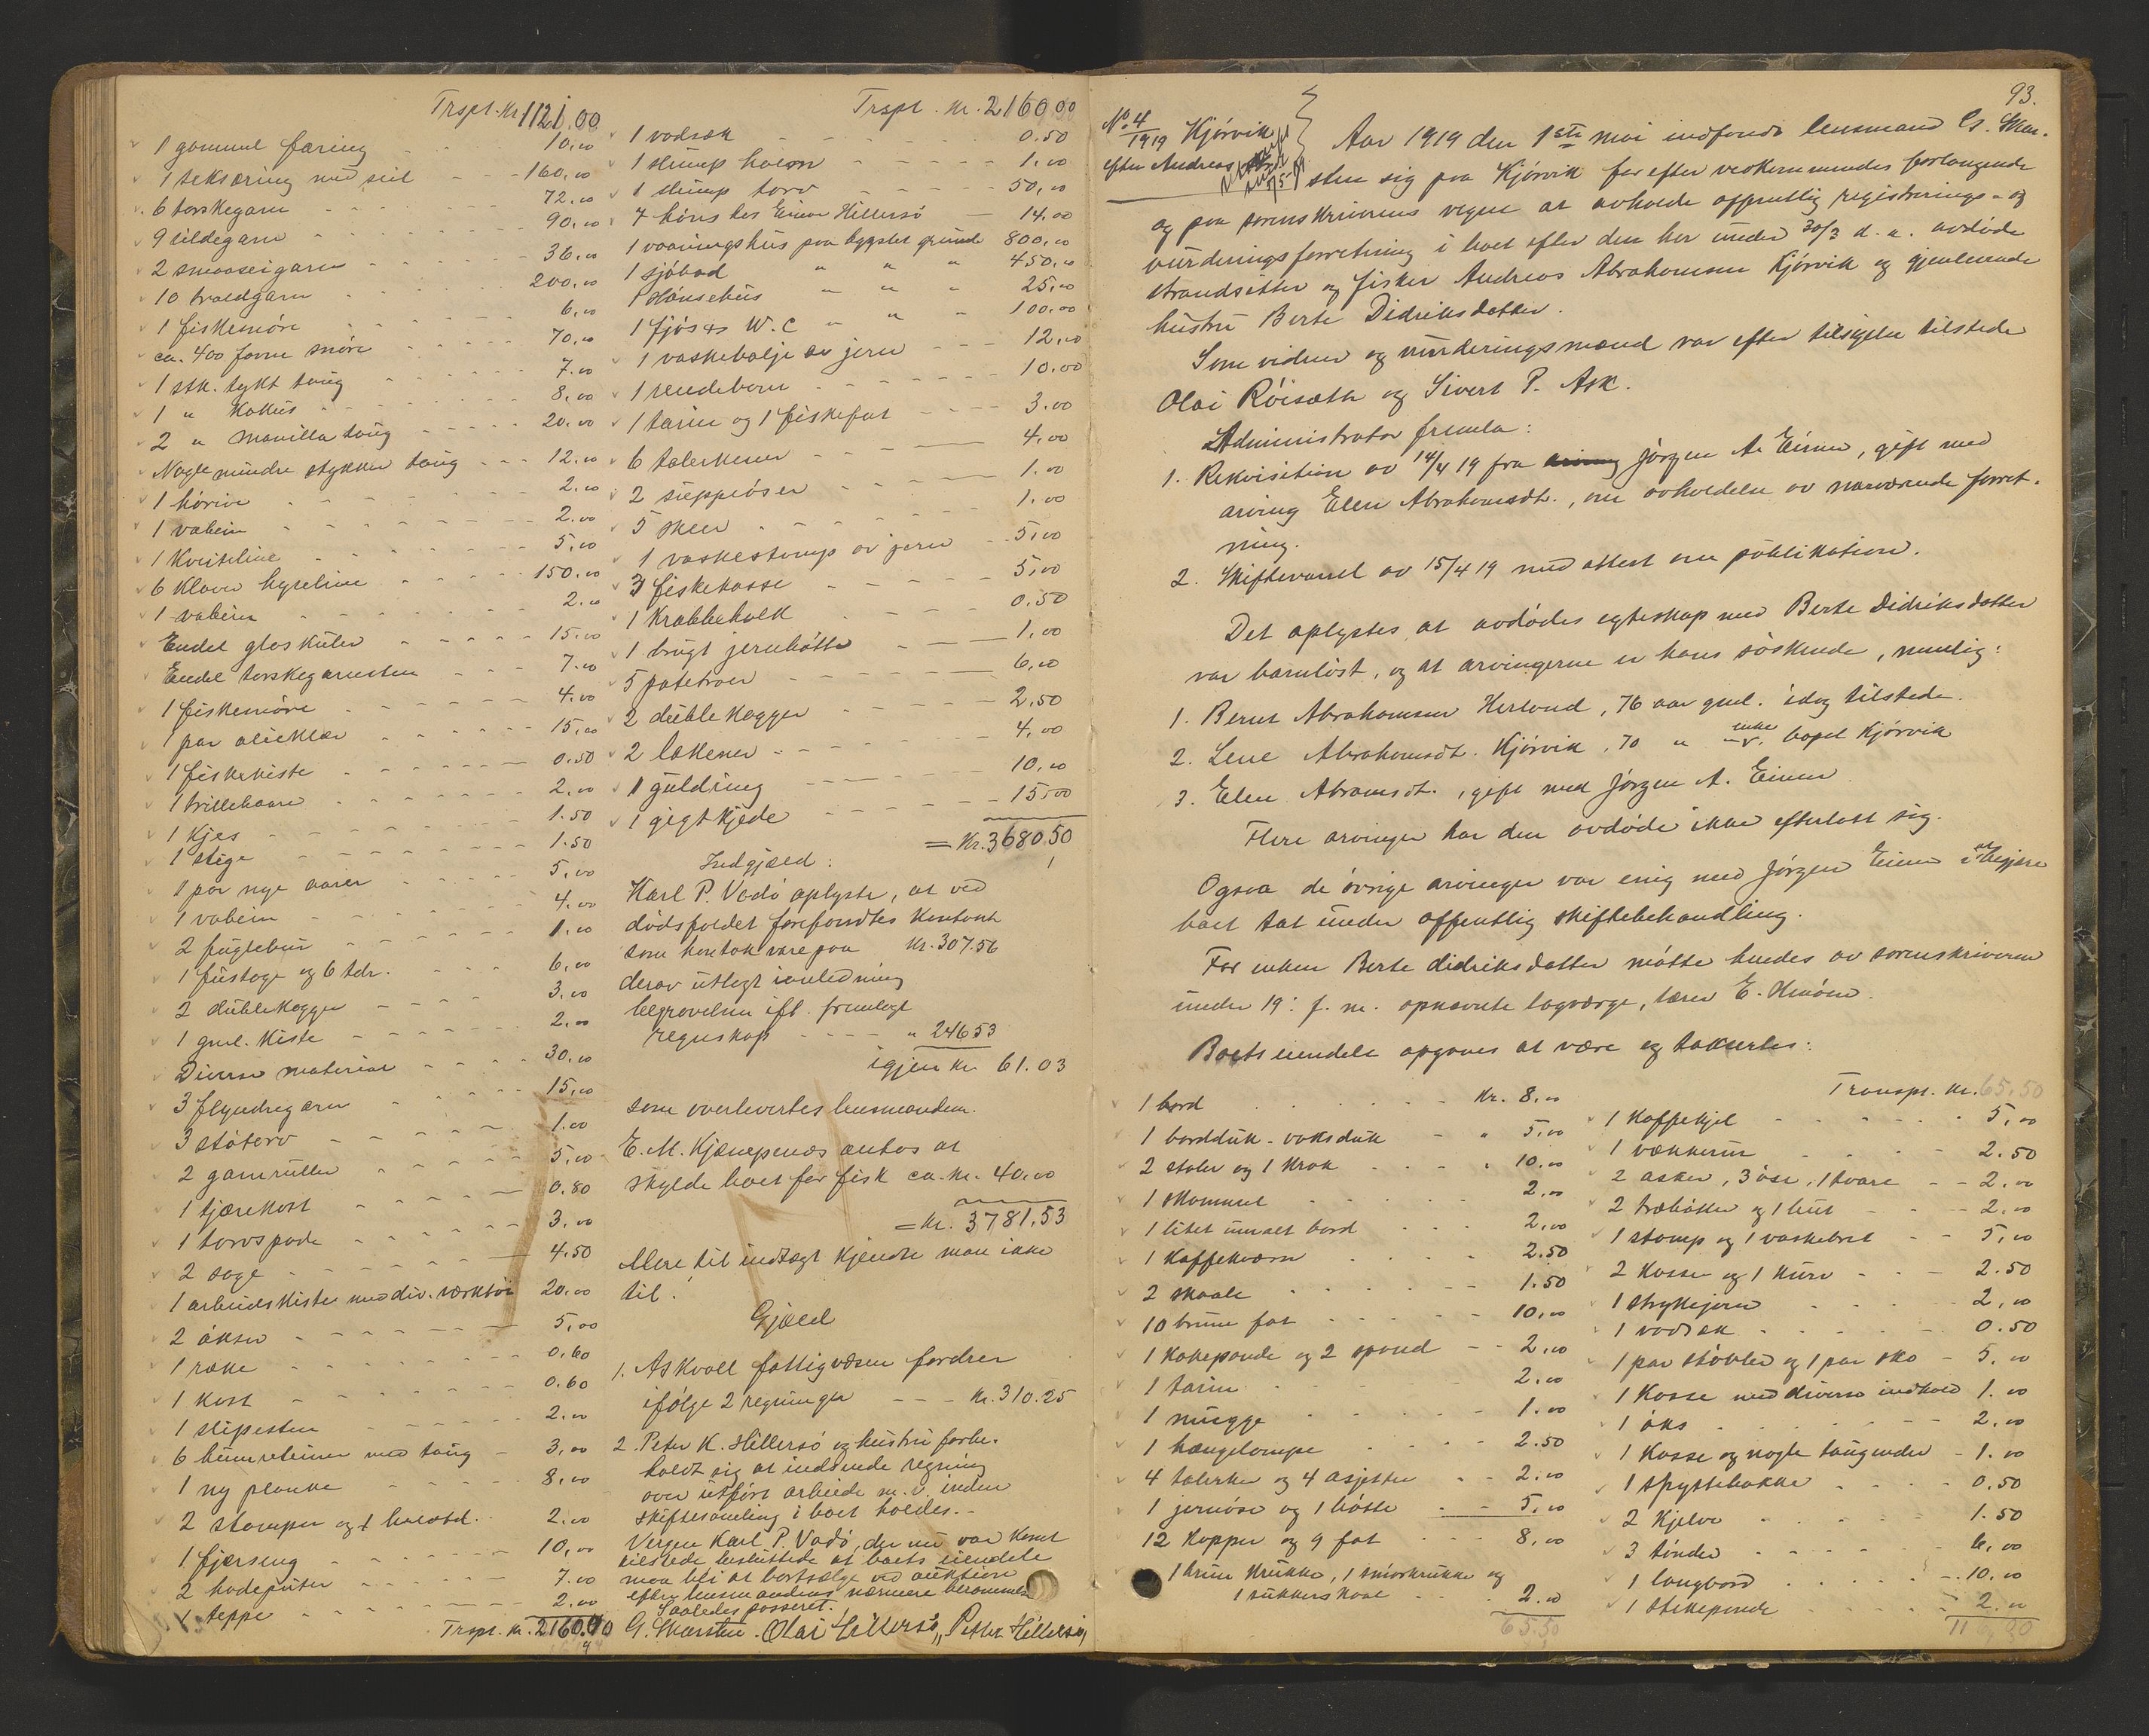 Trspt. Kr. 1121.00
1 gammel færing 10,00
1 seksæring med seil 160,00
6 torskegarn 72,00
9 sildegarn 90,00
2 smaaseigarn 36,00
10 traadgarn 200,00
1 fiskesnöre 6,00
ca. 400 favne snöre 70,00
1 stk. tykt taug 7.00
1 " Kokus 8,00
2 " Manilla taug 20.00
Nogle mindre stykker taug 12.00
1 hörive 2.00
1 vabein 2.00
1 Kveiteline 5,00
6 Klaver hyseline 150.00
1 vabein 2.00
Endel glaskuler 15.00
Endel torskegarnsten 7.00
1 fiskesnöre 4.00
1 par olieklær 15,00
1 fiskekiste 0.50
1 trillebaare 2.00
1 Kjes 1.50
1 stige 1.50
1 par nye aarer 5,00
1 vabein 4.00
2 fuglebur 1.00
1 fustage og 6 tdr. 6,00
2 dublekagger 3.00
1 gml. Kiste 2.00
Diverse materiar 30.00
3 flyndregarn 15,00
3 stöterv 1.00
2 garnruller 5,00
1 tjærekost 0.80
1 torvspade 3.00
2 sage 4.50
1 arbeidskiste med div. verktöi 20.00
2 økser 5,00
1 rake 0.60
1 kost 0.60
1 slipesten 2.00
6 bunnsteiner med taug 3,00
1 ny planke 8,00
2 stamper og 1 halvtd. 2.00
1 fjærseng 10,00
2 hodeputer 7.00
1 teppe 2.00
Trspt. Kr. 2160.00
Trspt. Kr. 2160.00
1 vadsæk 0.50
1 slump halm 1.00
1 slump torv 50,00
7 höns hos Einar Hillersö 14.00
1 vaaningshus paa bygslet grund 800,00
1 sjöbod " " " 450,00
1 Hönsehus " " " 25,00
1 fjös & W.C " " " 100.00
1 vaskebalje av jern 12,00
1 rendeborn 10.00
1 tarin og 1 fiskefat 3.00
6 talerkener 4,00
2 suppeöser 1.00
5 skeer 1.00
1 vaskestamp av jern 5,00
3 fiskekasse 5,00
1 Krabbekolk 0.50
1 brugt jernbötte 1.00
5 potetkar 6,00
2 dublekagger 2.50
2 lakener 4,00
1 guldring 10,00
1 gigtkjede 15,00
= Kr. 3680.50
Indgjæld:
Karl P. Vadö oplyste, at ved
dödsfaldet forefandtes Kontant
som han tok vare paa Kr. 307.56
derav utlagt i anledning
begravelsen ifl. fremlagt
regnskap " 246.53
igjen Kr. 61.03
som overlevertes lensmanden.
E. M. Kjæmpenes antas at
skylde boet for fisk ca. Kr. 40.00
= Kr. 3781,53
Mere til indtægt kjendte man ikke
til.
Gjæld
1. Askvoll fattigvæsen fordrer
ifölge 2 regninger Kr. 310.25
2. Peter K. Hillersö og hustru forbe-
holdt sig at indsende regning
over utfört arbeide m. v. inden
skiftesamling i boet holdes.-
Vergen Karl P. Vadö, der nu var Komt
tilstede besluttede at boets eiendele
maa bli at bortsælge ved auktion
efter lensmandens nærmere berammelse
Saaledes passeret.
G. Skarsten. Olai Hillersö, Petter Hillersö,
93.
No. 4
1919 Kjörvik
efter Andreas
Aar 1919 den 1ste mai indfandt lensmand G. Skar-
sten sig paa Kjörvik for efter vedkommendes forlangende
og paa sorenskriverens vegne at avholde offentlig registrerings- og
vurderingsforretning i boet efter den her under 30/3 d. a. avdöde
strandsitter og fisker Andreas Abrahamsen Kjörvik og gjenlevende
hustru Berte Didriksdatter.
Som vidner og vurderingsmænd var efter tilsigelse tilstede
Olai Röisæth og Sivert P. Ask.
Administrator fremla:
1. Rekvisition av 14/4 19 fra Jörgen A. Einen, gift med
arving Elen Abrahamsdt., om avholdelse av nærværende forret-
ning.
2. Skiftevarsel av 15/4 19 med attest om publikation.
Det oplystes, at avdödes egteskap med Berte Didriksdatter
var barnlöst, og at arvingerne er hans söskende, nemlig:
1. Bernt Abrahamsen Herland, 76 aar gml. idag tilstede.
2. Lene Abrahamsdt. Kjörvik, 70 " " enke bopel Kjörvik
3. Elen Abramsdt., gift med Jörgen A. Einen.
Flere arvinger har den avdöde ikke efterlatt sig.
Ogsaa de övrige arvinger var enig med Jörgen Einen i at begjære
boet tat under offentlig skiftebehandling.
For enken Berte Didriksdatter mötte hendes av sorenskriveren
under 19. f. m. opnævnte lagværge, lærer E.
Boets eiendele opgaves at være og taksertes:
1 bord Kr. 8,00
1 bordduk - voksduk " 5,00
2 stoler og 1 Krak " 10.00
1 skammel 2,00
1 litet umalt bord 2,00
1 Kaffekværn 2.50
2 skaale 1.50
10 brune fat 10,00
1 Kakepande og 2 spand 2.00
1 tarin 2.00
1 mugge 1.00
1 hængelampe 2.50
4 talerker og 4 asjetter 2.00
1 jernöse og 1 bötte 5,00
12 Kopper og 9 fat 8,00
1 brun Krukke, 1 smörkrukke og
1 sukkerskaal 2.00
65.50
Transpt. Kr. 65.50
1 Kaffekjel 5,00
1 vækkerur 2.50
2 asker, 3 öse, 1 tvare 2,00
2 træbötter og 1 but 2.00
1 stamp og 1 vaskebret 5,00
2 Kasser og 1 Kurv 2.50
1 strykejern 2,00
1 vadsæk 0.50
1 par stövler og 1 par sko 5,00
1 Kasse med diverse indhold 1.00
1 öks 2.00
1 Kasse og nogle taugender 1.00
1 spyttebakke 0.50
2 Kjelve 1.50
3 tönder 6,00
1 langbord 10.00
1 stekepande 2.00